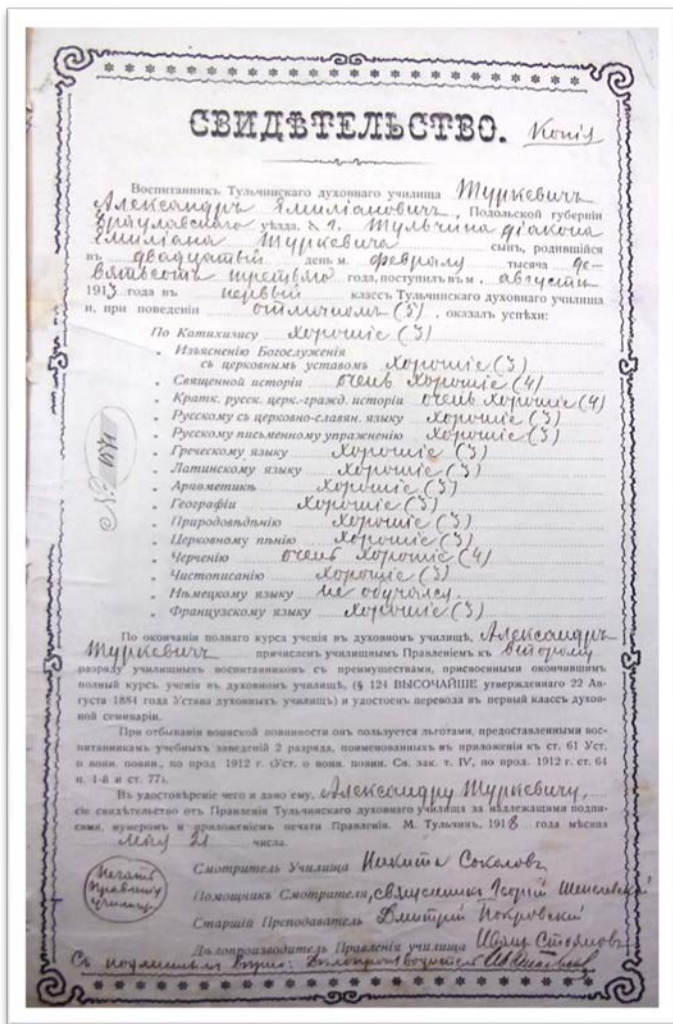 СВИДѢТЕЛЬСТВО. Копія
Воспитанникъ Тульчинскаго духовнаго училища Туркевичъ
Александръ Емиліановичъ, Подольской губерніи
Брацлавскаго уѣзда, м. Тульчина діакона
Емиліана Туркевича сынъ, родившійся
въ двадцатый день м. февраля тысяча де-
вятьсотъ третьяго года, поступилъ въ м. августѣ
1913 года въ первый классъ Тульчинскаго духовнаго училища
и, при поведеніи отличномъ (5), оказалъ успѣхи:
По Катихизису хорошіе (3)
„ Изъясненію Богослуженія
съ церковнымъ уставомъ хорошіе (3)
„ Священной исторіи очень хорошіе (4)
„ Кратк. русск. церк.-гражд. исторіи очень хорошіе (4)
„ Русскому съ церковно-славян. языку хорошіе (3)
„ Русскому письменному упражненію хорошіе (3)
„ Греческому языку хорошіе (3)
„ Латинскому языку хорошіе (3)
„ Ариѳметикѣ хорошіе (3)
„ Географіи хорошіе (3)
„ Природовѣдѣнію хорошіе (3)
„ Церковному пѣнію хорошіе (3)
„ Черченію очень хорошіе (4)
„ Чистописанію хорошіе (3)
„ Нѣмецкому языку не обучался
„ Французскому языку хорошіе (3)
По окончаніи полнаго курса ученія въ духовномъ училищѣ, Александръ
Туркевичъ причисленъ училищнымъ Правленіемъ къ второму
разряду училищныхъ воспитанниковъ съ преимуществами, присвоенными окончившимъ
полный курсъ ученія въ духовномъ училищѣ, (§ 124 ВЫСОЧАЙШЕ утвержденнаго 22 Ав-
густа 1884 года Устава духовныхъ училищъ) и удостоенъ перевода въ первый классъ духов-
ной семинаріи.
При отбываніи воинской повинности онъ пользуется льготами, предоставленными вос-
питанникамъ учебныхъ заведеній 2 разряда, поименованныхъ въ приложеніи къ ст. 61 Уст.
о воин. повин., по прод. 1912 г. (Уст. о воин. повин. Св. зак. т. IV, по прод. 1912 г. ст. 64
п. 1-й и ст. 77).
Въ удостовѣреніе чего и дано ему, Александру Туркевичу,
сіе свидѣтельство отъ Правленія Тульчинскаго духовнаго училища за надлежащими подпи-
сями, нумеромъ и приложеніемъ печати Правленія. М. Тульчинъ, 1918 года мѣсяца
Мая 21 числа.
Смотритель Училища Никита Соколовъ
Помощникъ Смотрителя, священникъ Георгій
Старшій Преподаватель Дмитрій Покровскій
Дѣлопроизводитель Правленія училища
Печать
Правленія
училища
Съ подлиннымъ вѣрно: Дѣлопроизводитель